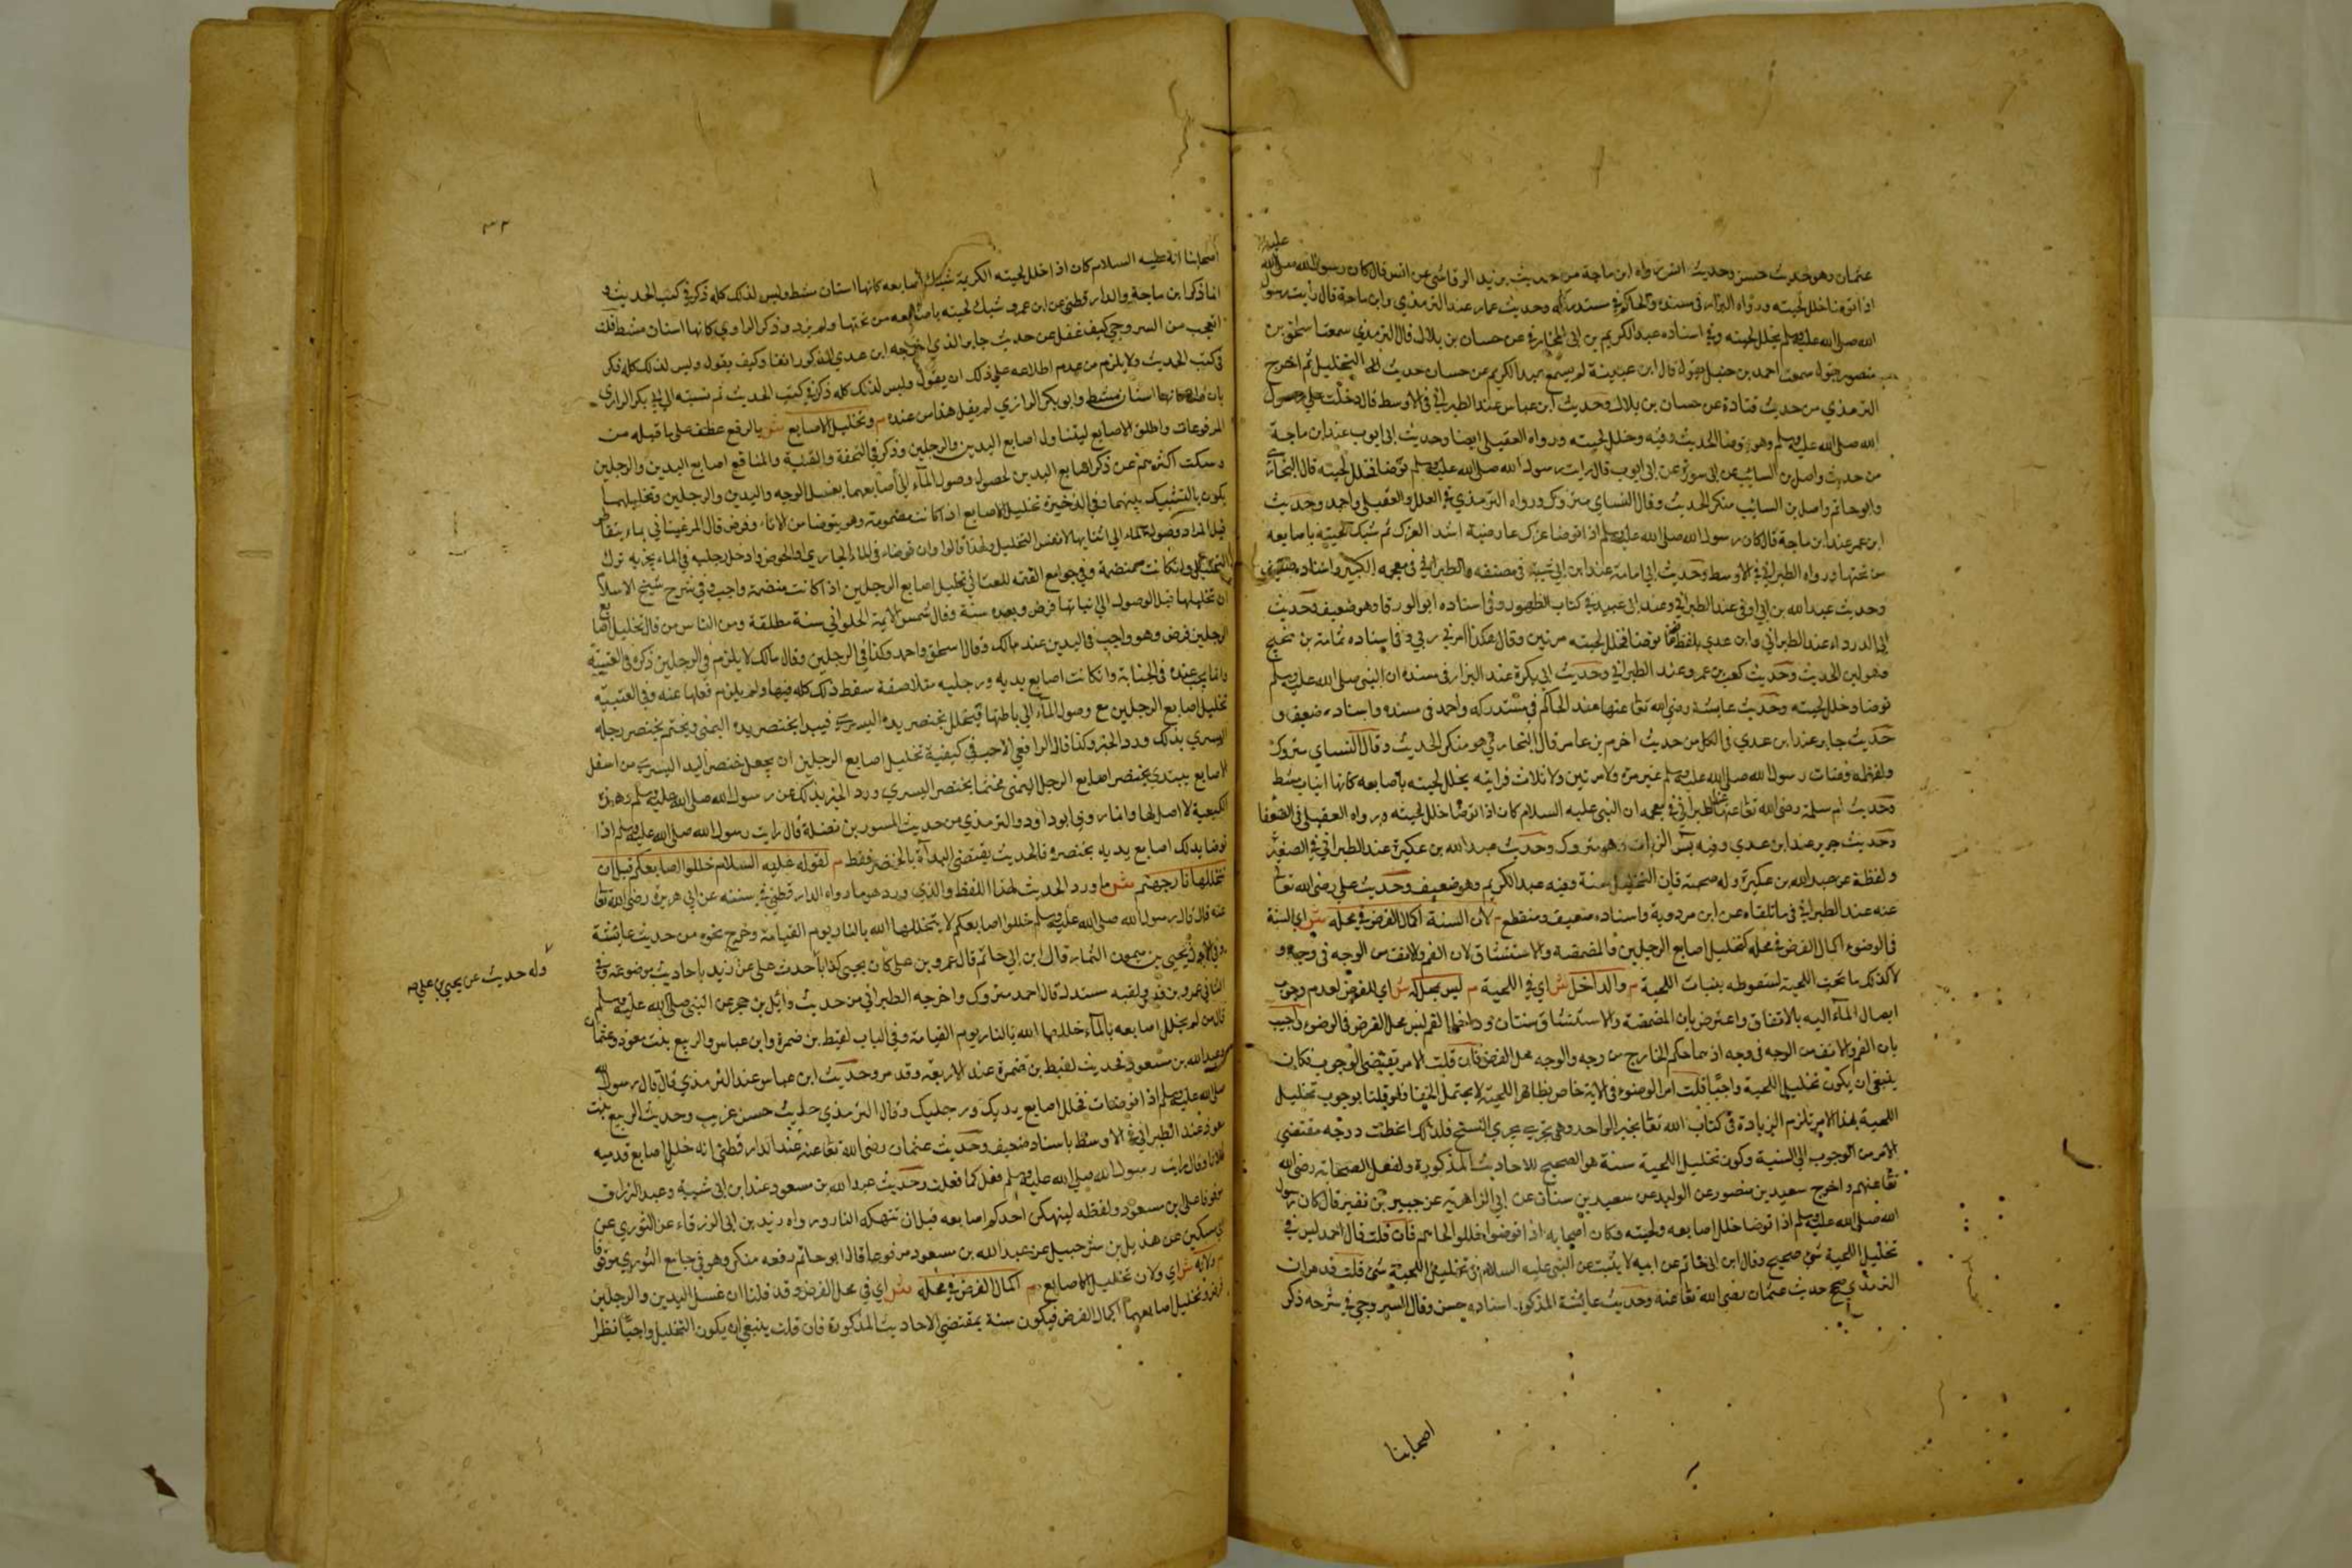 عليه
عثمان وهو حديث حسن وحديث انس رواه ابن ماجة من حديث يزيد الرقاشي عن انس قال كان رسول الله صلى الله
اذا توضأ خلل لحيته ورواه البزار في مسنده والحاكم في مستدركه وحديث عمار عند الترمذي وابن ماجة قال رأيت رسول
الله صلى الله عليه وسلم يخلل لحيته وفي اسناده عبد الكريم بن ابي المخارق عن حسان بن بلال قال الترمذي سمعت اسحق بن
منصور يقول سمعت احمد بن حنبل يقول قال ابن عيينة لم يسمع عبد الكريم من حسان حديث التخليل ثم اخرج
الترمذي من حديث قتادة عن حسان بن بلال وحديث ابن عباس عند الطبراني في الاوسط قال دخلت على رسول
الله صلى الله عليه وسلم وهو يتوضأ الحديث وفيه وخلل لحيته ورواه العقيلي ايضا وحديث ابي ايوب عند ابن ماجة
من حديث واصل بن السائب عن ابي سورة عن ابي ايوب قال رايت رسول الله صلى الله عليه وسلم توضأ فخلل لحيته قال البخاري
وابو حاتم واصل بن السائب منكر الحديث وقال النساي متروك ورواه الترمذي في العلل والعقيلي واحمد وحديث
ابن عمر عند ابن ماجة قال كان رسول الله صلى الله عليه وسلم اذا توضأ عرك عارضيه اشد العرك ثم شبك لحيته باصابعه
من تحتها ورواه الطبراني في الاوسط وحديث ابي امامة عند ابن ابي شيبة في مصنفه والطبراني في معجمه الكبير واسناده ضعيف
وحديث عبد الله بن ابي اوفى عند الطبراني وعند ابي عبيد في كتاب الطهور وفي اسناده ابو الورقا وهو ضعيف وحديث
ابي الدرداء عند الطبراني وابن عدي بلفظ توضأ فخلل لحيته مرتين وقال هكذا امرني ربي وفي اسناده تمام بن نجيح
وهو لين الحديث وحديث كعب بن عمرو عند الطبراني وحديث ابي بكرة عند البزار في مسنده ان النبي صلى الله عليه وسلم
توضأ وخلل لحيته وحديث عايشة رضي الله تعا عنها عند الحاكم في مستدركه واحمد في مسنده واسناده ضعيف و
حديث جابر عند ابن عدي في الكامل من حديث اخرم بن عامر قال البخاري هو منكر الحديث وقال النساي متروك
ولفظه وضأت رسول الله صلى الله عليه وسلم غير مرة ولا مرتين ولا ثلاث فرايته يخلل لحيته باصابعه كانها انياب مشط
وحديث ام سلمة رضي الله تعا عنها عند الطبراني في معجمه ان النبي عليه السلام كان اذا توضأ خلل لحيته ورواه العقيلي في الضعفا
وحديث جرير عند ابن عدي وفيه يس الزيات وهو متروك وحديث عبد الله بن عكبرة عند الطبراني في الصغير
ولفظه عن عبد الله بن عكبرة وله صحبة قال التخليل سنة وفيه عبد الكريم وهو ضعيف وحديث علي رضي الله تعالى
عنه عند الطبراني في ما تلقاه عن ابن مردوية واسناده ضعيف ومنقطع م لان السنة اكمال الفرض في محله ش اي السنة
في الوضوء اكمال الفرض في محله كتخليل اصابع الرجلين والمضمضة والاستنشاق لان الفم والانف من الوجه في وجه و
لا كذلك ما تحت اللحية لسقوطه بنبات اللحية م والداخل ش اي في اللحية م ليس بمحله ش اي للفرض لعدم وجوب
ايصال الماء اليه بالاتفاق واعترض بان المضمضة والاستنشاق سنتان وداخل الفم ليس محل الفرض في الوضوء واجيب
بان الفم والانف من الوجه في وجه اذ لهما حكم الخارج من وجه والوجه محل الفرض فان قلت الامر يقتضي الوجوب فكان
ينبغي ان يكون تخليل اللحية واجبا قلت امر الوضوء في الاية خاص بظاهر اللحية لا يحتمل الخفا فلو قلنا بوجوب تخليل
اللحية بهذا الامر تلزم الزيادة في كتاب الله تعا بخبر الواحد وهي تجري مجرى النسخ فلذلك انحطت درجه مقتضي
الامر من الوجوب الى السنية وكون تخليل اللحية سنة هو الصحيح للاحاديث المذكورة ولفعل الصحابة رضي الله
تعا عنهم واخرج سعيد بن منصور عن الوليد عن سعيد بن سنان عن ابي الزاهرية عن جبير بن نفير قال كان رسول
الله صلى الله عليه وسلم اذا توضأ خلل اصابعه ولحيته وكان اصحابه اذا توضوا خللوا لحاهم فان قلت قال احمد ليس في
تخليل اللحية شئ صحيح وقال ابن ابي حاتم عن ابيه لا يثبت عن النبي عليه السلام في تخليل اللحية شئ قلت قد مر ان
الترمذي صحح حديث عثمان رضي الله تعا عنه وحديث عائشة المذكور اسناده حسن وقال السروجي في شرحه ذكر
اصحابنا
٣٢
اصحابنا انه عليه السلام كان اذا خلل لحيته الكريمة شبك اصابعه كانها اسنان مشط وليس لذلك كله ذكر في كتب الحديث و
انما ذكر ابن ماجة والدارقطني عن ابن عمرو شبك لحيته باصابعه من تحتها ولم يزد وذكر الماوردي كانها اسنان مشط قلت
العجب من السروجي كيف غفل عن حديث جابر الذي اخرجه ابن عدي المذكور انفا وكيف يقول وليس لذلك كله ذكر
في كتب الحديث ولا يلزم من عدم اطلاعه على ذلك ان يقول وليس لذلك كله ذكر في كتب الحديث ثم نسبته الى ابي بكر الرازي
كانها اسنان مشط وابو بكر الرازي لم يقل هذا من عنده م وتخليل الاصابع ش بالرفع عطف على ما قبله من
المرفوعات واطلق الاصابع ليتناول اصابع اليدين والرجلين وذكر في التحفة والقنية والمنافع اصابع اليدين والرجلين
وسكت اكثرهم عن ذكر اصابع اليدين لحصول وصول الماء الى اصابعهما بغسل الوجه واليدين والرجلين وتخليلهما
يكون بالتشبيك بينهما وفي الذخيرة تخليل الاصابع اذا كانت مضمومة وهو يتوضأ من الاناء وفرض قال المرغيناني بماء يتقاطر
ان تخليلها قبل الوصول الى ثناياها فرض وبعده سنة وقال شمس الائمة الحلواني سنة مطلقة ومن الناس من قال تخليل اصابع
الرجلين فرض وهو واجب في اليدين عند مالك وقال اسحق واحمد وكذا في الرجلين وقال مالك لا يلزم في الرجلين ذكره في العتبية
وانما يجب عنده في الجنابة وان كانت اصابع يديه ورجليه متلاصقة سقط ذلك كله فيها ولم يلزم فعلها عنه وفي العتبية
تخليل اصابع الرجلين مع وصول الماء الى باطنها قيتخلل بخنصر يده اليسرى فيبدا بخنصر يده اليمنى ويختم بخنصر رجله
اليسرى بذلك ورد الخبر وكذا قال الرافعي الاحب في كيفية تخليل اصابع الرجلين ان يجعل خنصر اليد اليسرى من اسفل
الاصابع يبتدي بخنصر اصابع الرجل اليمنى مختتما بخنصر اليسرى ورد الخبر بذلك عن رسول الله صلى الله عليه وسلم وهذه
الكيفية لا اصل لها وانما روى ابو داود والترمذي من حديث المسور بن فضلة قال رايت رسول الله صلى الله عليه وسلم اذا
توضأ يدلك اصابع يديه بخنصره فالحديث يقتضي البدأة بالخنصر فقط م لقوله عليه السلام خللوا اصابعكم قبل ان
تتخللها نار جهنم ش ما ورد الحديث بهذا اللفظ والذي ورد هو ما رواه الدارقطني في سننه عن ابي هريرة رضي الله تعا
عنه قال قال رسول الله صلى الله عليه وسلم خللوا اصابعكم لا يتخللها الله بالنار يوم القيامة وخرج نحوه من حديث عائشة
وفي الاول يحيى بن ميمون التمار قال ابن ابي حاتم قال عمرو بن علي كان يحيى كذابا حدث عن علي بن زيد باحاديث موضوعة وفي
وله حديث عن يحيى بن علي صه
الثاني عمرو بن قيس ولقبه سندل قال احمد متروك واخرجه الطبراني من حديث وائل بن حجر عن النبي صلى الله عليه وسلم
قال من لم يخلل اصابعه بالماء خللها الله بالنار يوم القيامة وفي الباب لقيط بن ضمرة وابن عباس والربيع بنت معوذ وعثمان
وعبد الله بن مسعود فحديث لقيط بن ضمرة عند الاربعة وقد مر وحديث ابن عباس عند الترمذي قال قال رسول الله
صلى الله عليه وسلم اذا توضات فخلل اصابع يديك ورجليك وقال الترمذي حديث حسن غريب وحديث الربيع بنت
معوذ عند الطبراني في الاوسط باسناد ضعيف وحديث عثمان رضي الله تعا عنه عند الدارقطني انه خلل اصابع قدميه
ثلاثا وقال رايت رسول الله صلى الله عليه وسلم فعل كما فعلت وحديث عبد الله بن مسعود عند ابن ابي شيبة وعبد الرزاق
موقوفا على ابن مسعود ولفظه لينهكن احدكم اصابعه قبل ان تنهكه النار ورواه زيد بن ابي الزرقاء عن الثوري عن
ابي مسكين عن هذيل بن شرحبيل عن عبد الله بن مسعود مرفوعا قال ابو حاتم رفعه منكر وهو في جامع الثوري موقوفا
م ولانه ش اي ولان تخليل الاصابع م اكمال الفرض في محله ش اي في محل الفرض وقد قلنا ان غسل اليدين والرجلين
فرض وتخليل اصابعهما اكمال الفرض فيكون سنة بمقتضى الاحاديث المذكورة فان قلت ينبغي ان يكون التخليل واجبا نظرا